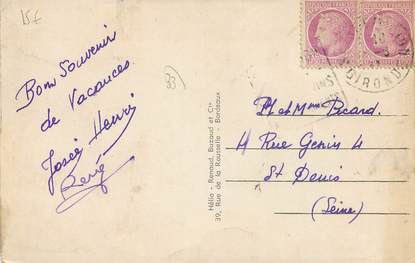 15€
33
Bons Souvenirs
de Vacances
Josée Henri
René
Hélio - Renaud, Buzaud et Cie
39, Rue de la Rousselle - Bordeaux
GIRONDE
M et Mme Picard.
4 Rue Genin 4
St Denis
(Seine)